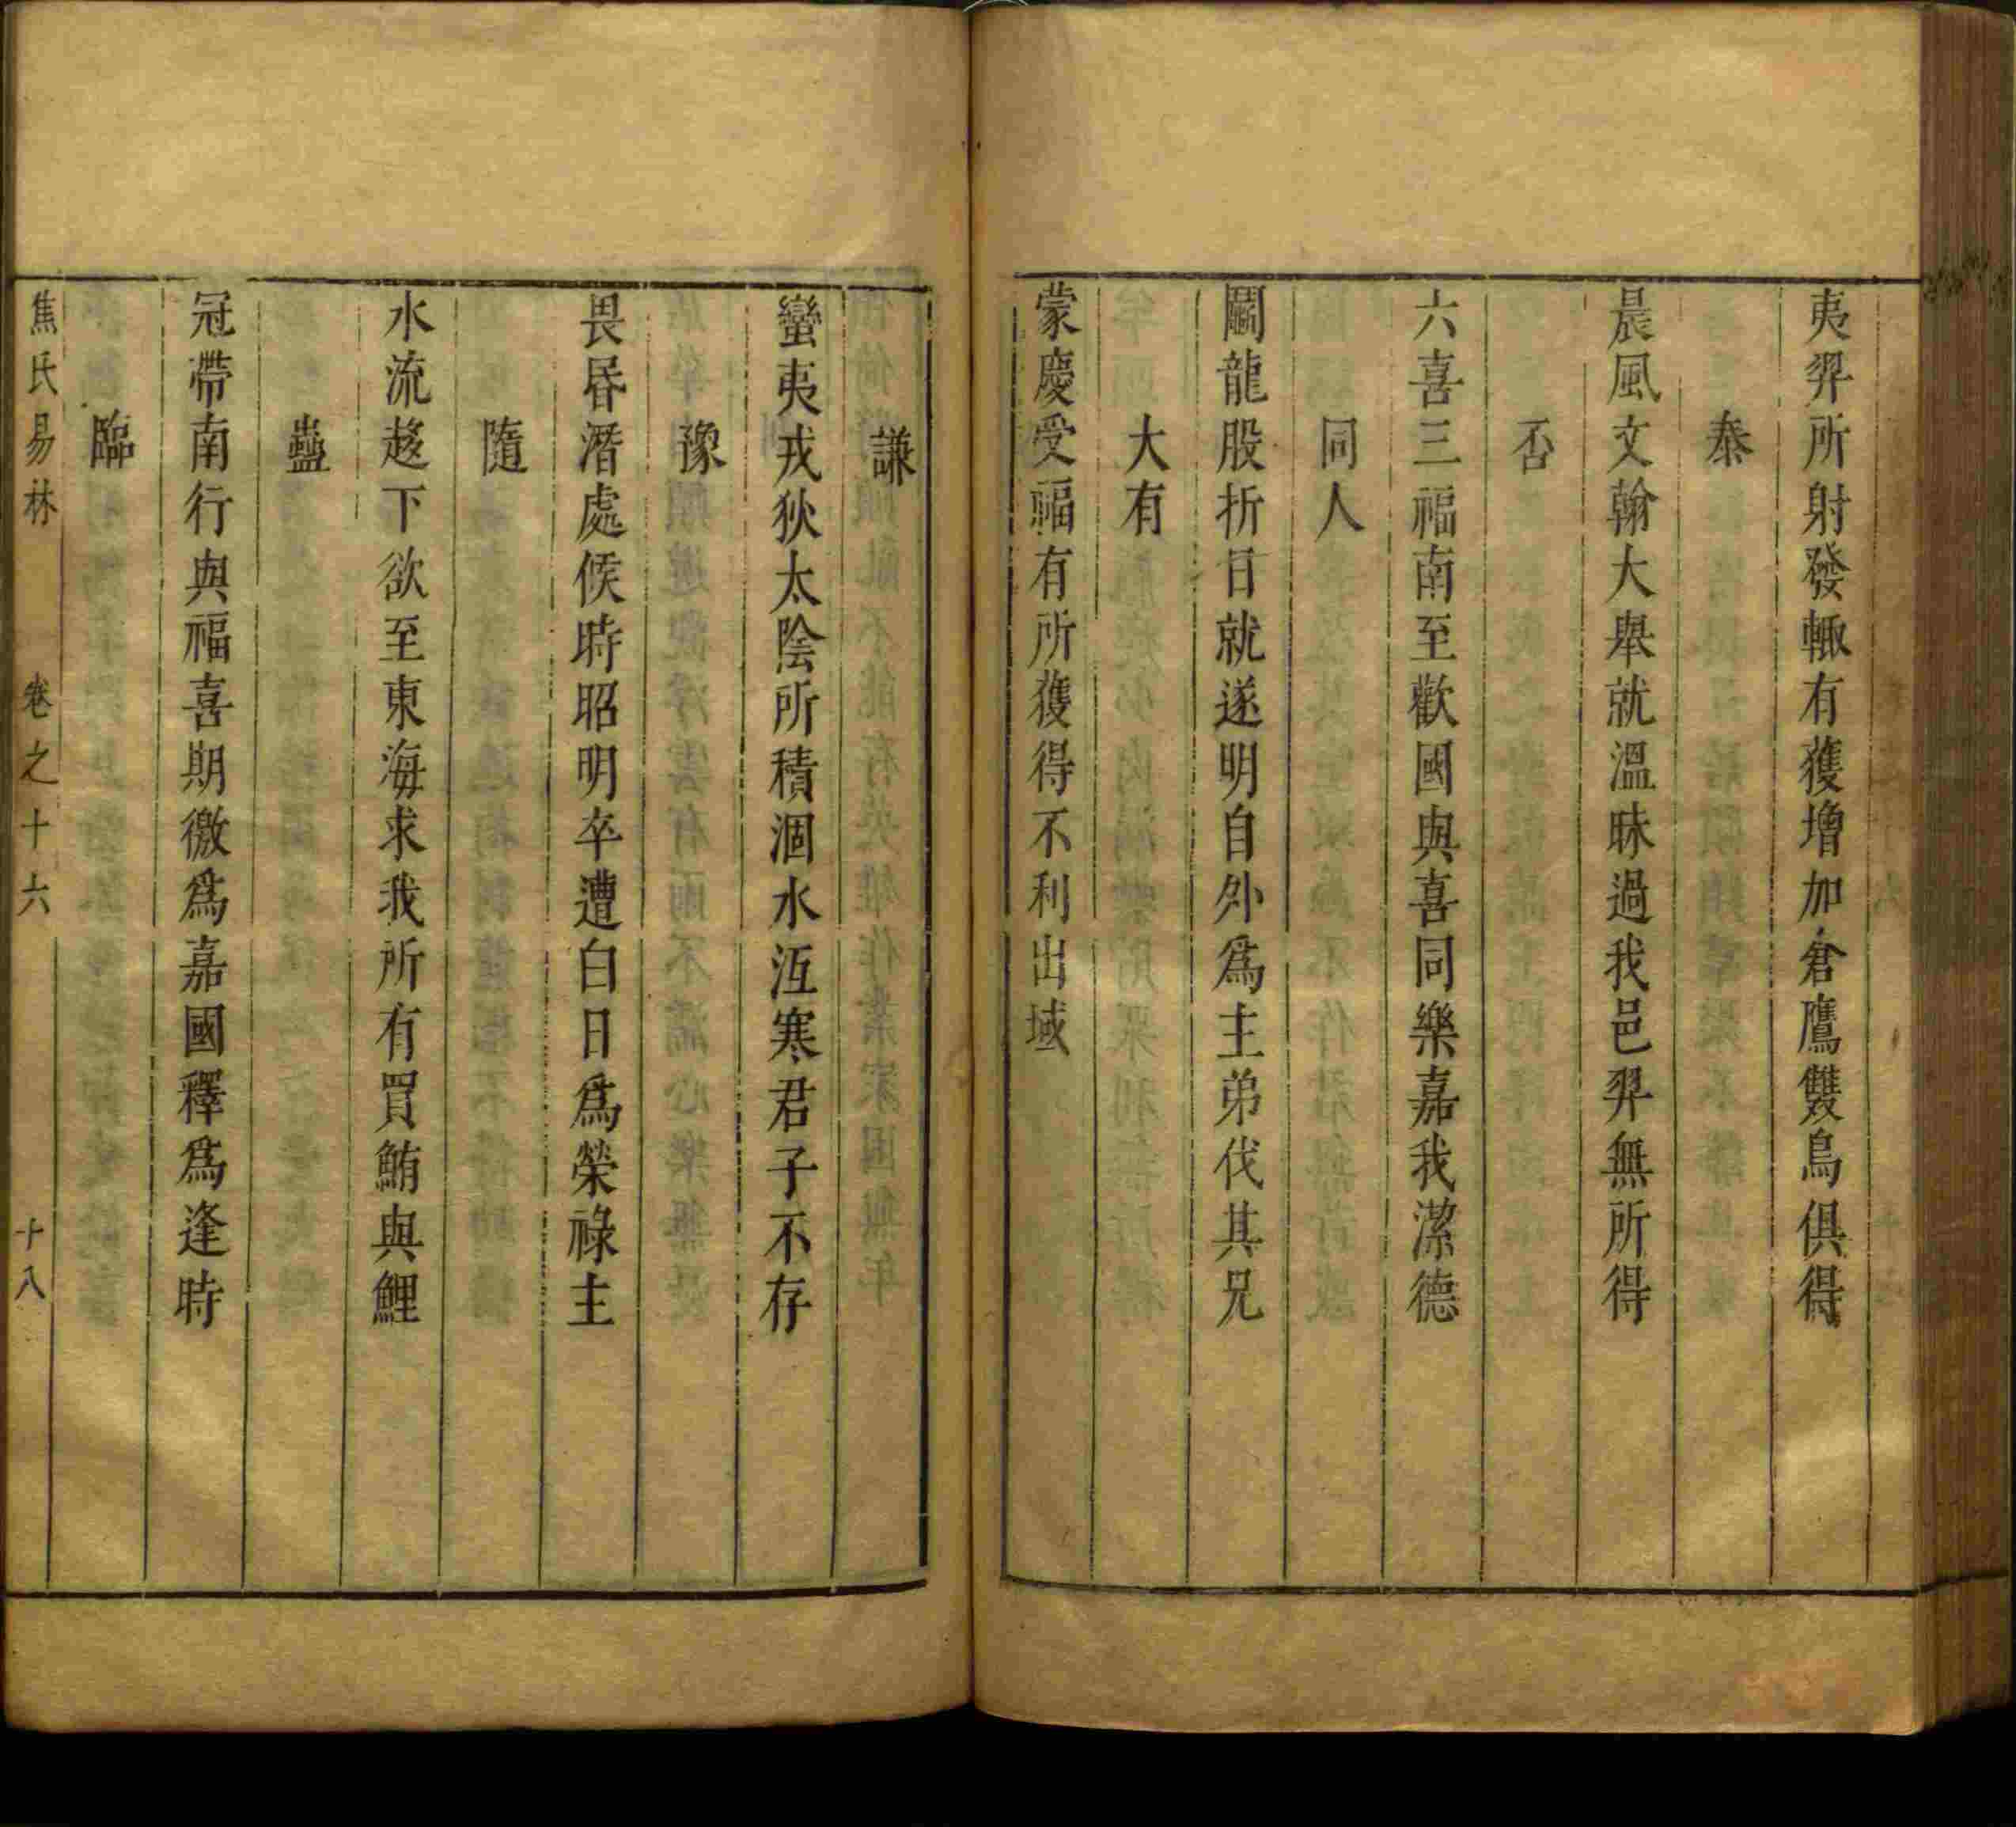 夷羿所射發輙有獲增加倉鷹雙鳥俱得
泰
晨風文翰大舉就溫昧過我邑羿無所得
否
六喜三福南至歡國與喜同樂嘉我潔德
同人
鬭龍股折日就遂明自外爲主弟伐其兄
大有
蒙慶受福有所獲得不利出域
謙
蠻夷戎狄太陰所積涸水沍寒君子不存
豫
畏昬潛處候時昭明卒遭白日爲榮祿主
隨
水流趍下欲至東海求我所有買鮪與鯉
蠱
冠帶南行與福喜期徼爲嘉國釋爲逢時
臨
焦氏易林 卷之十六 十八